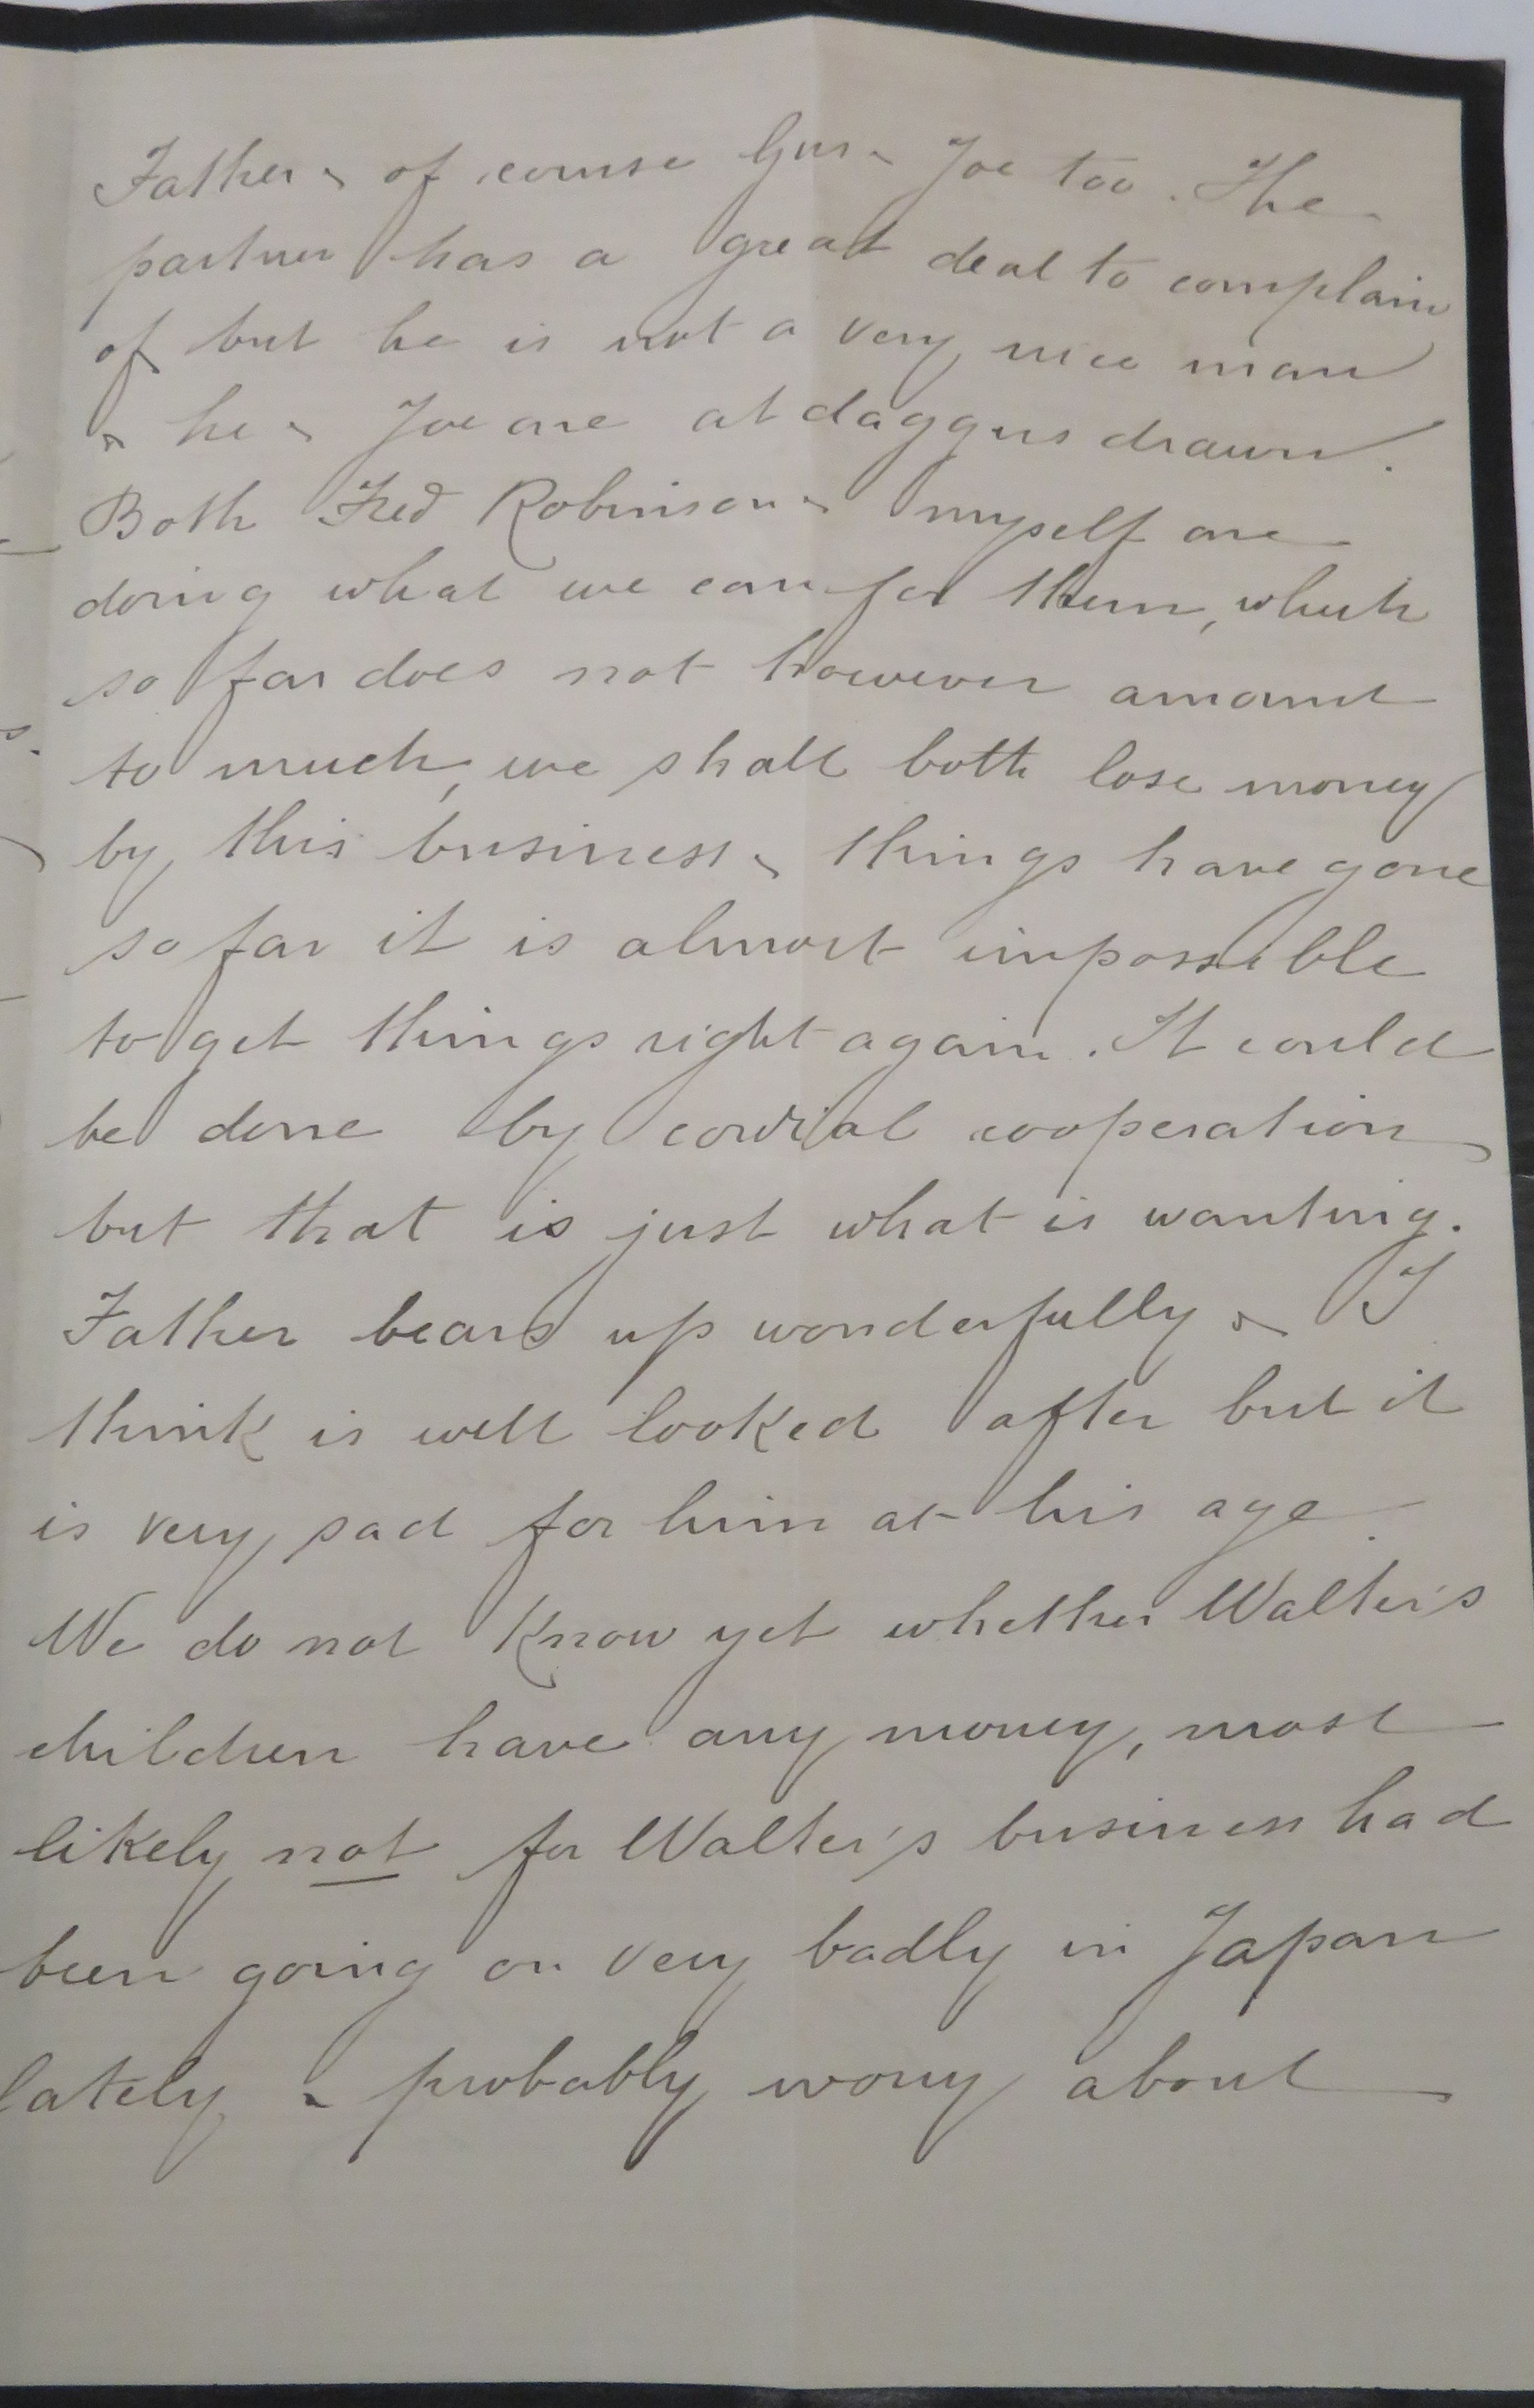 Father & of course Gus & Joe too. The
partner has a great deal to complain
of but he is not a very nice man
& he & Joe are at daggers drawn.
Both Fred Robinson & myself are
doing what we can for them, which
so far does not however amount
to much, we shall both lose money
by this business & things have gone
so far it is almost impossible
to get things right again. It could
be done by cordial cooperation
but that is just what is wanting.
Father bears up wonderfully & I
think is well looked after but it
is very sad for him at his age.
We do not know yet whether Walter's
children have any money, most
likely not for Walter's business had
been going on very badly in Japan
lately & probably worry about